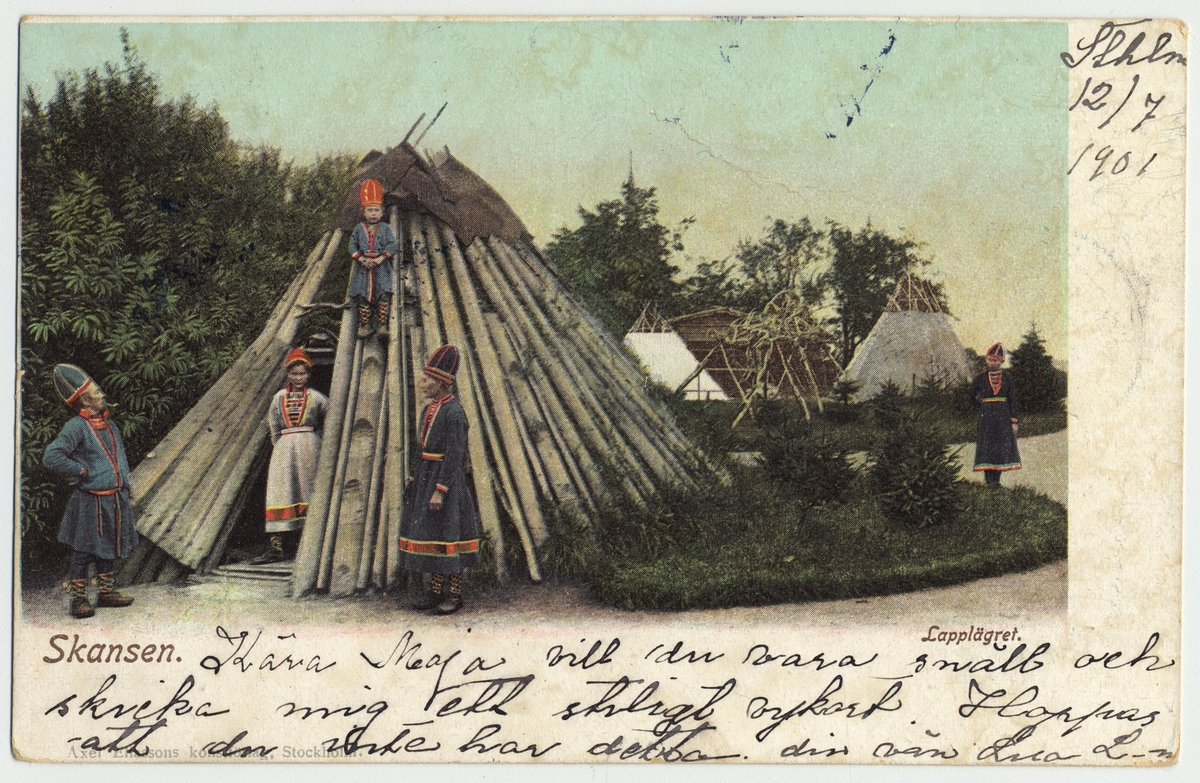 Sthlm
12/7
1901
Skansen.
Lapplägret.
Kära Maja vill du vara snäll och
skicka mig ett stiligt vykort. Hoppas
att du inte har detta. din vän L-n
Axel Eliassons konstförlag, Stockholm.